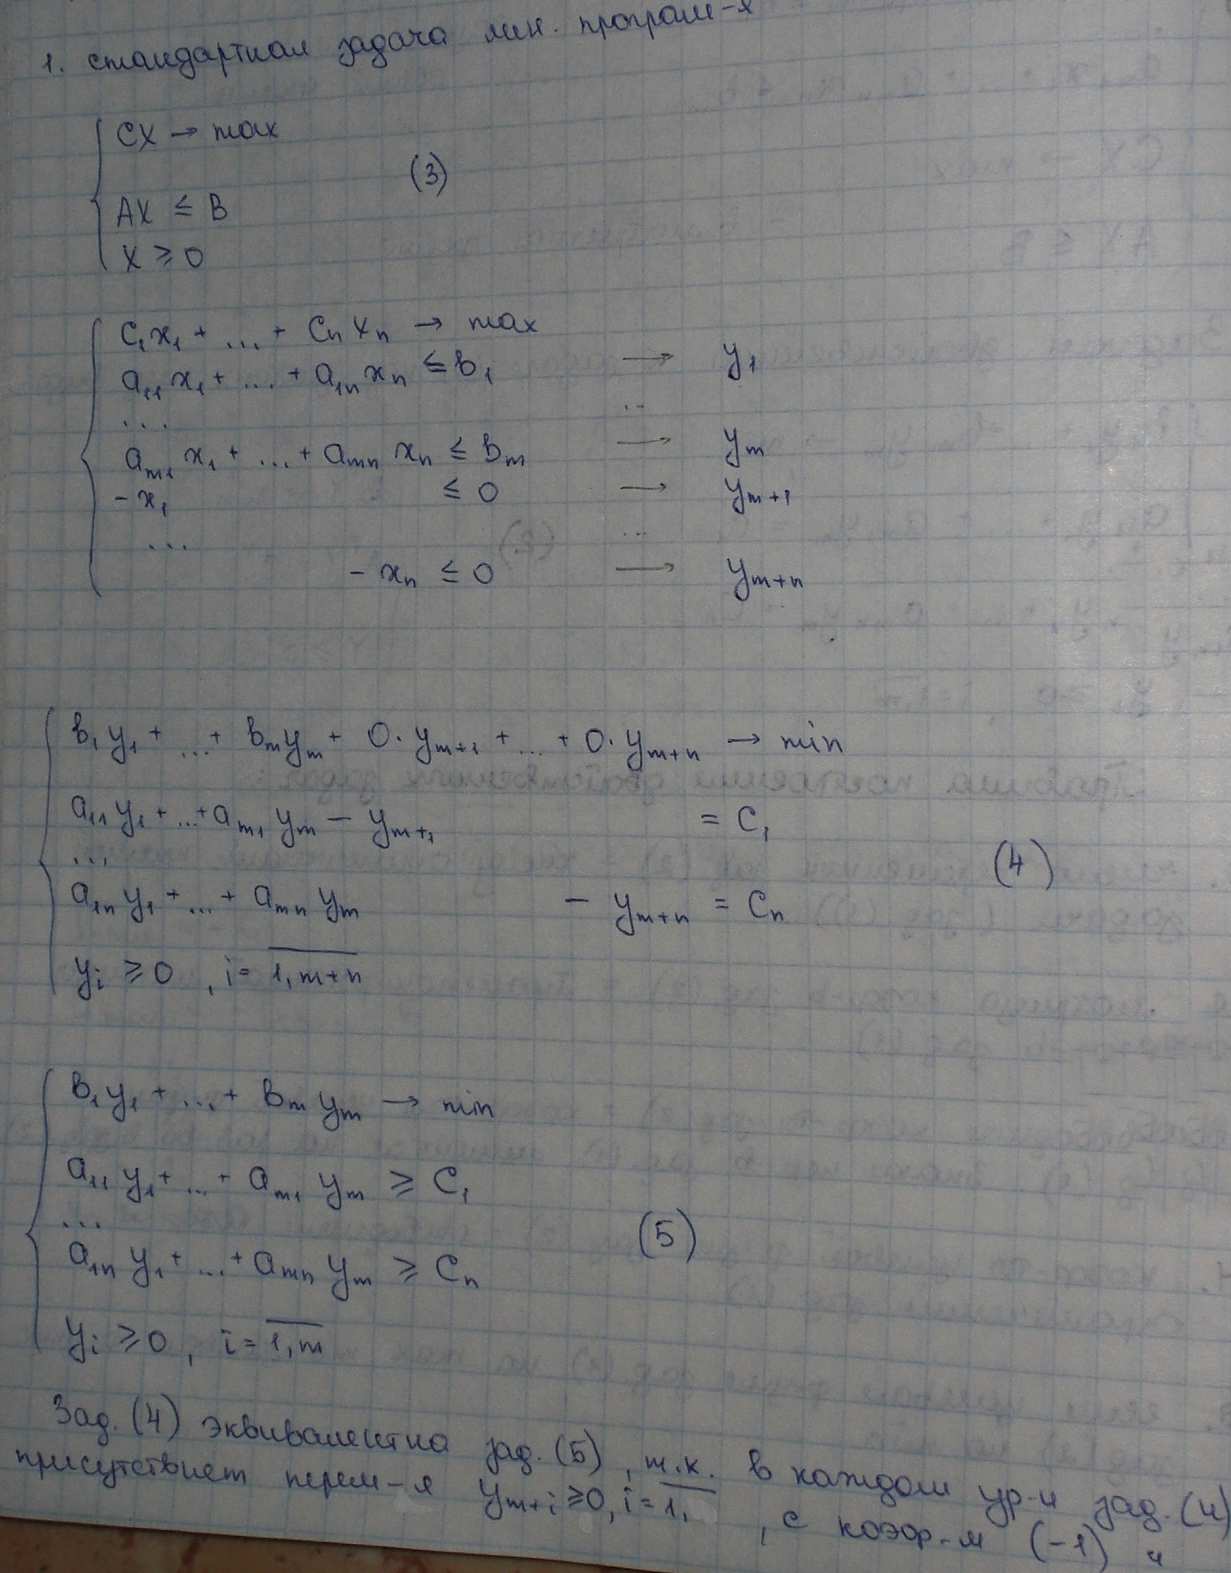 1. стандартная задача лин. програм-я
CX → max
(3)
AX ≤ B
X ≥ 0
c₁x₁ + ... + cₙxₙ → max
a₁₁x₁ + ... + a₁ₙxₙ ≤ b₁ → y₁
... ..
aₘ₁x₁ + ... + aₘₙxₙ ≤ bₘ → yₘ
-x₁ ≤ 0 → yₘ₊₁
... ..
-xₙ ≤ 0 → yₘ₊ₙ
b₁y₁ + ... + bₘyₘ + 0·yₘ₊₁ + ... + 0·yₘ₊ₙ → min
a₁₁y₁ + ... + aₘ₁yₘ - yₘ₊₁ = c₁
... (4)
a₁ₙy₁ + ... + aₘₙyₘ - yₘ₊ₙ = cₙ
yᵢ ≥ 0, i = 1,m+n
b₁y₁ + ... + bₘyₘ → min
a₁₁y₁ + ... + aₘ₁yₘ ≥ c₁
... (5)
a₁ₙy₁ + ... + aₘₙyₘ ≥ cₙ
yᵢ ≥ 0, i = 1,m
Зад. (4) эквивалентна зад. (5), т.к. в каждом ур-и зад. (4)
присутствует перем-я yₘ₊ᵢ ≥ 0, i = 1, , с коэф-м (-1) и